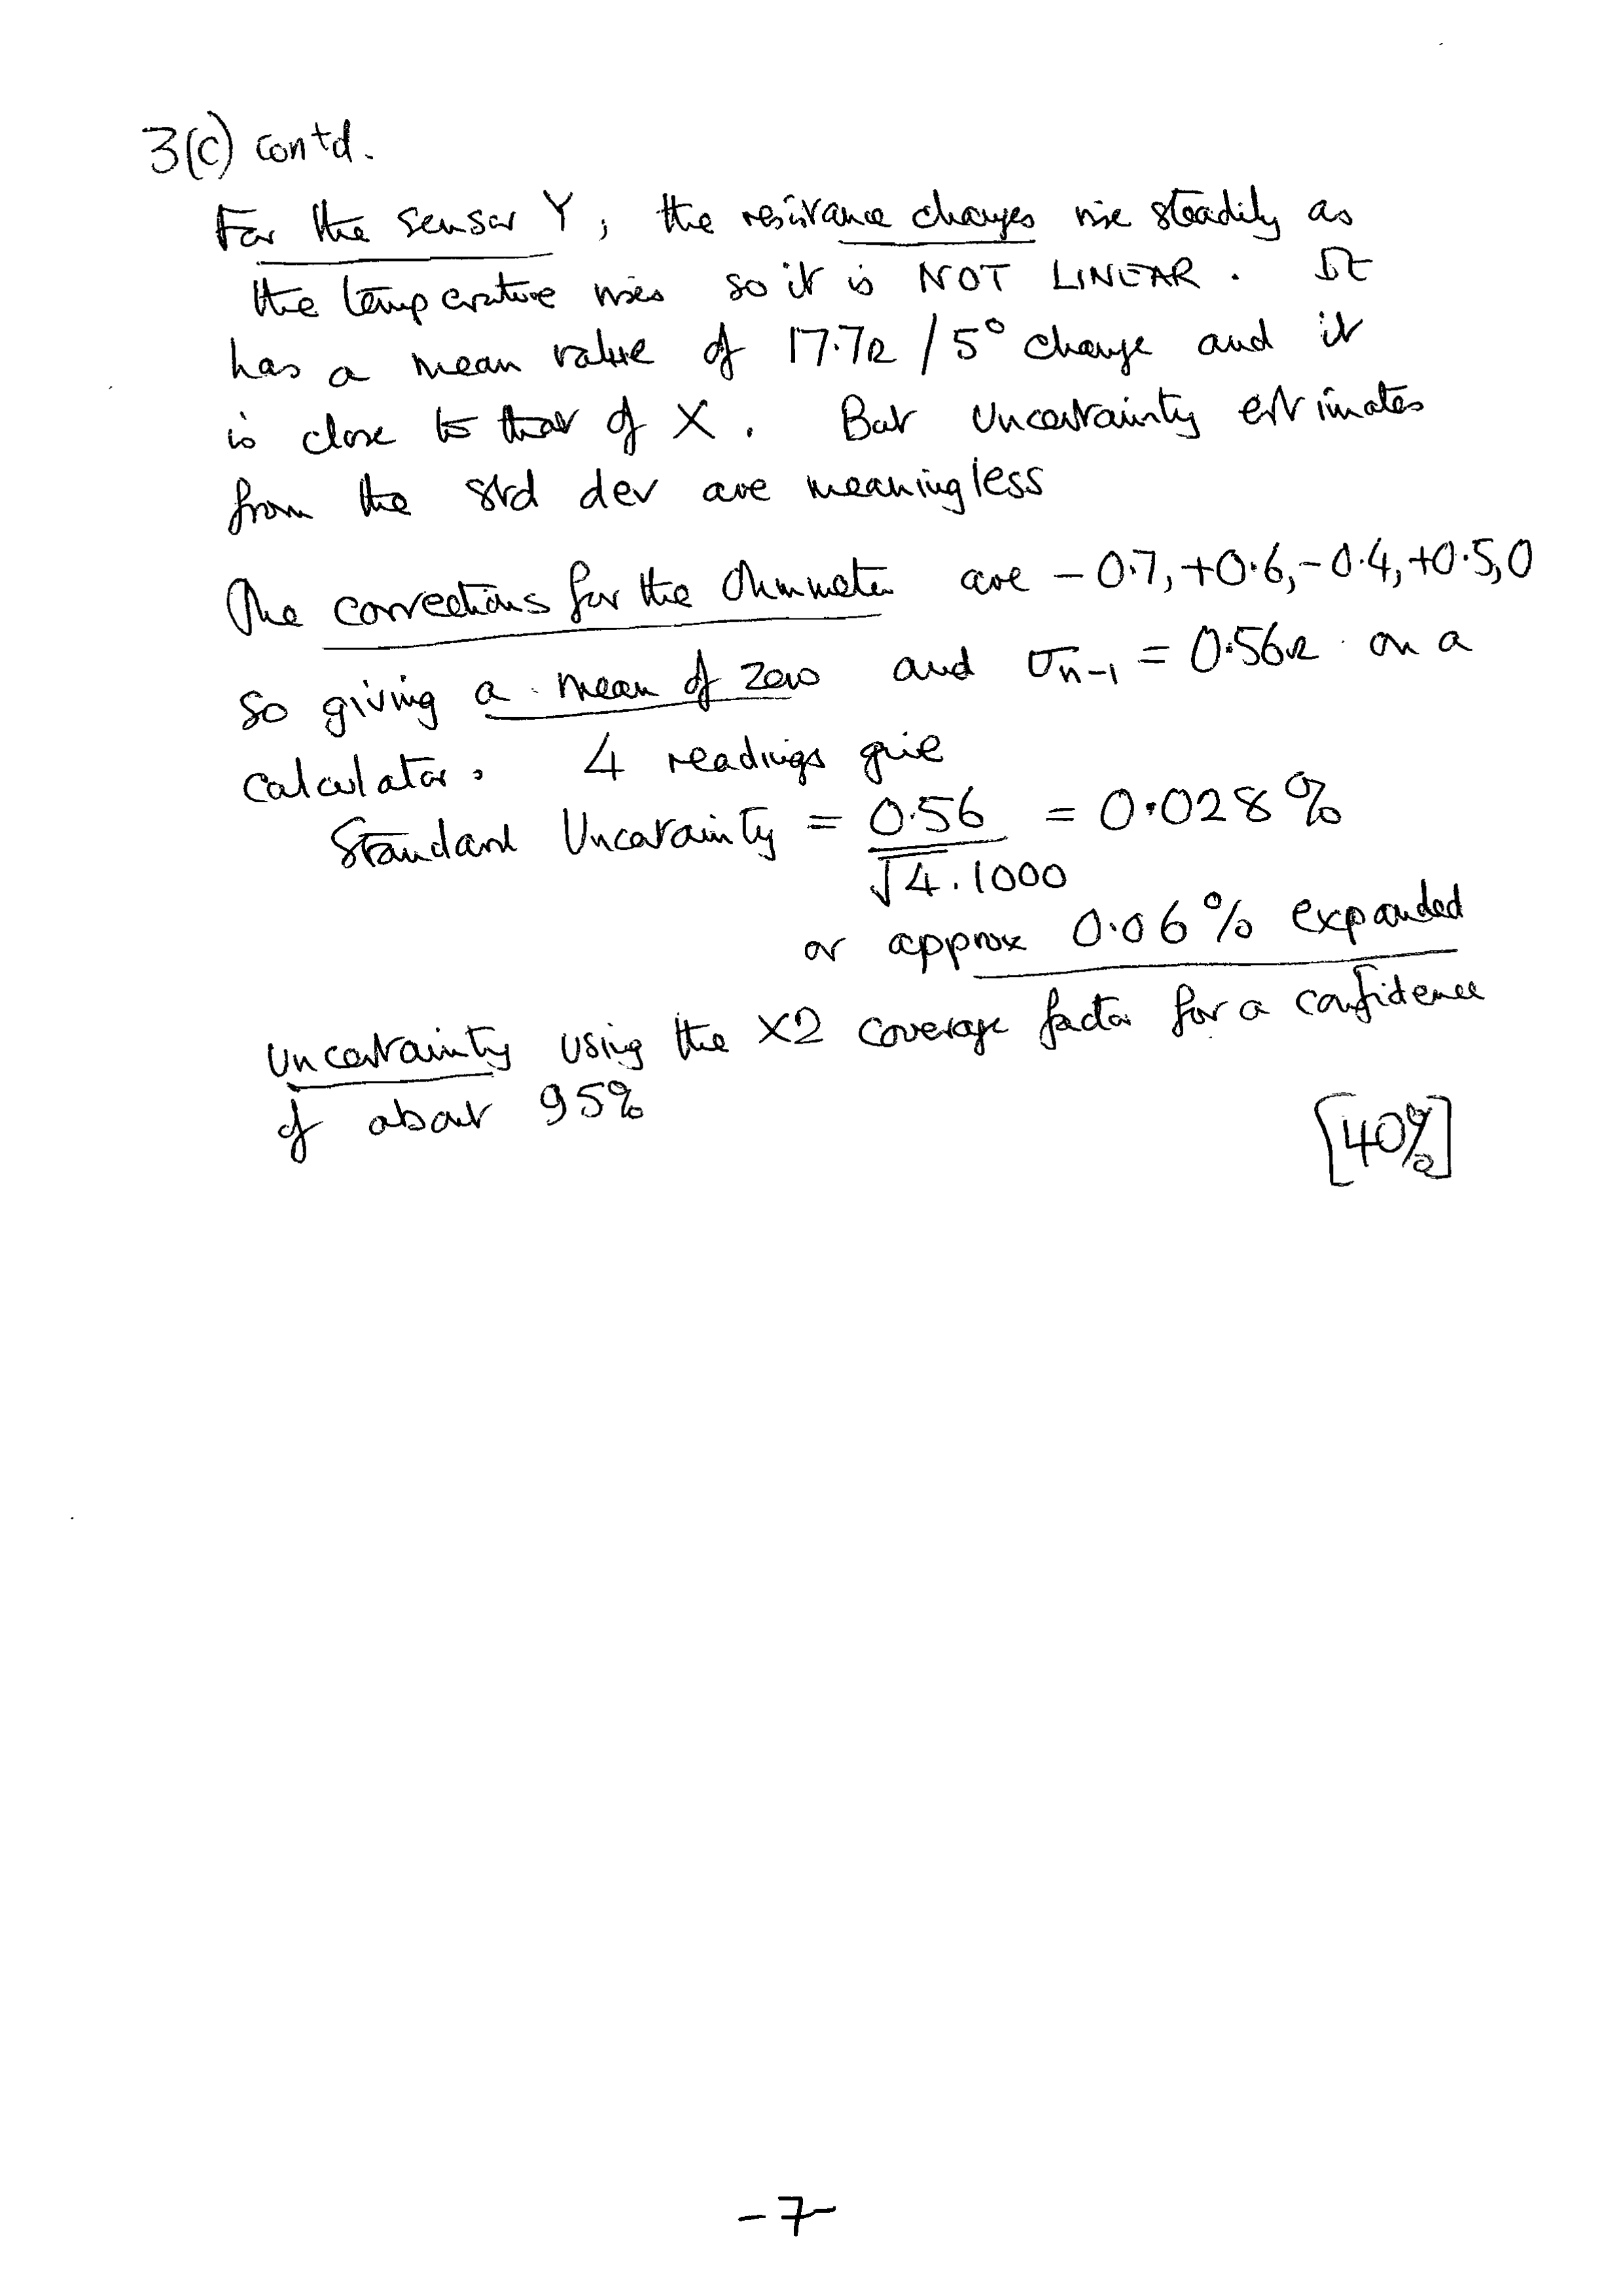 3(c) contd.
For the sensor Y, the resistance changes rise steadily as
the temperature rises so it is NOT LINEAR. It
has a mean value of 17.7Ω / 5° change and it
is close to that of X. But uncertainty estimates
from the std dev are meaningless
The corrections for the Ohmmeter are -0.7, +0.6, -0.4, +0.5, 0
so giving a mean of zero and σn-1 = 0.56Ω on a
calculator. 4 readings give
Standard Uncertainty = 0.56 / √4 . 1000 = 0.028%
or approx 0.06% expanded
uncertainty using the ×2 coverage factor for a confidence
of about 95%
[40%]
-7-